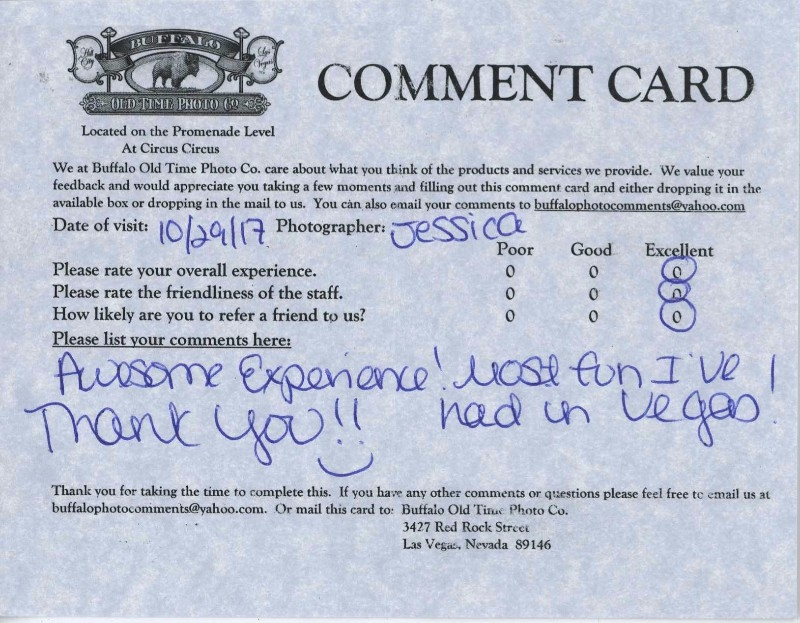 BUFFALO
Hell City
Las Vegas
OLD TIME PHOTO CO
COMMENT CARD
Located on the Promenade Level
At Circus Circus
We at Buffalo Old Time Photo Co. care about what you think of the products and services we provide. We value your
feedback and would appreciate you taking a few moments and filling out this comment card and either dropping it in the
available box or dropping in the mail to us. You can also email your comments to buffalophotocomments@yahoo.com
Date of visit: 10/29/17 Photographer: Jessica
Poor Good Excellent
Please rate your overall experience. 0 0 0
Please rate the friendliness of the staff. 0 0 0
How likely are you to refer a friend to us? 0 0 0
Please list your comments here:
Awesome Experience! Most fun I've
Thank You!! had in Vegas!
Thank you for taking the time to complete this. If you have any other comments or questions please feel free to email us at
buffalophotocomments@yahoo.com. Or mail this card to: Buffalo Old Time Photo Co.
3427 Red Rock Street
Las Vegas, Nevada 89146